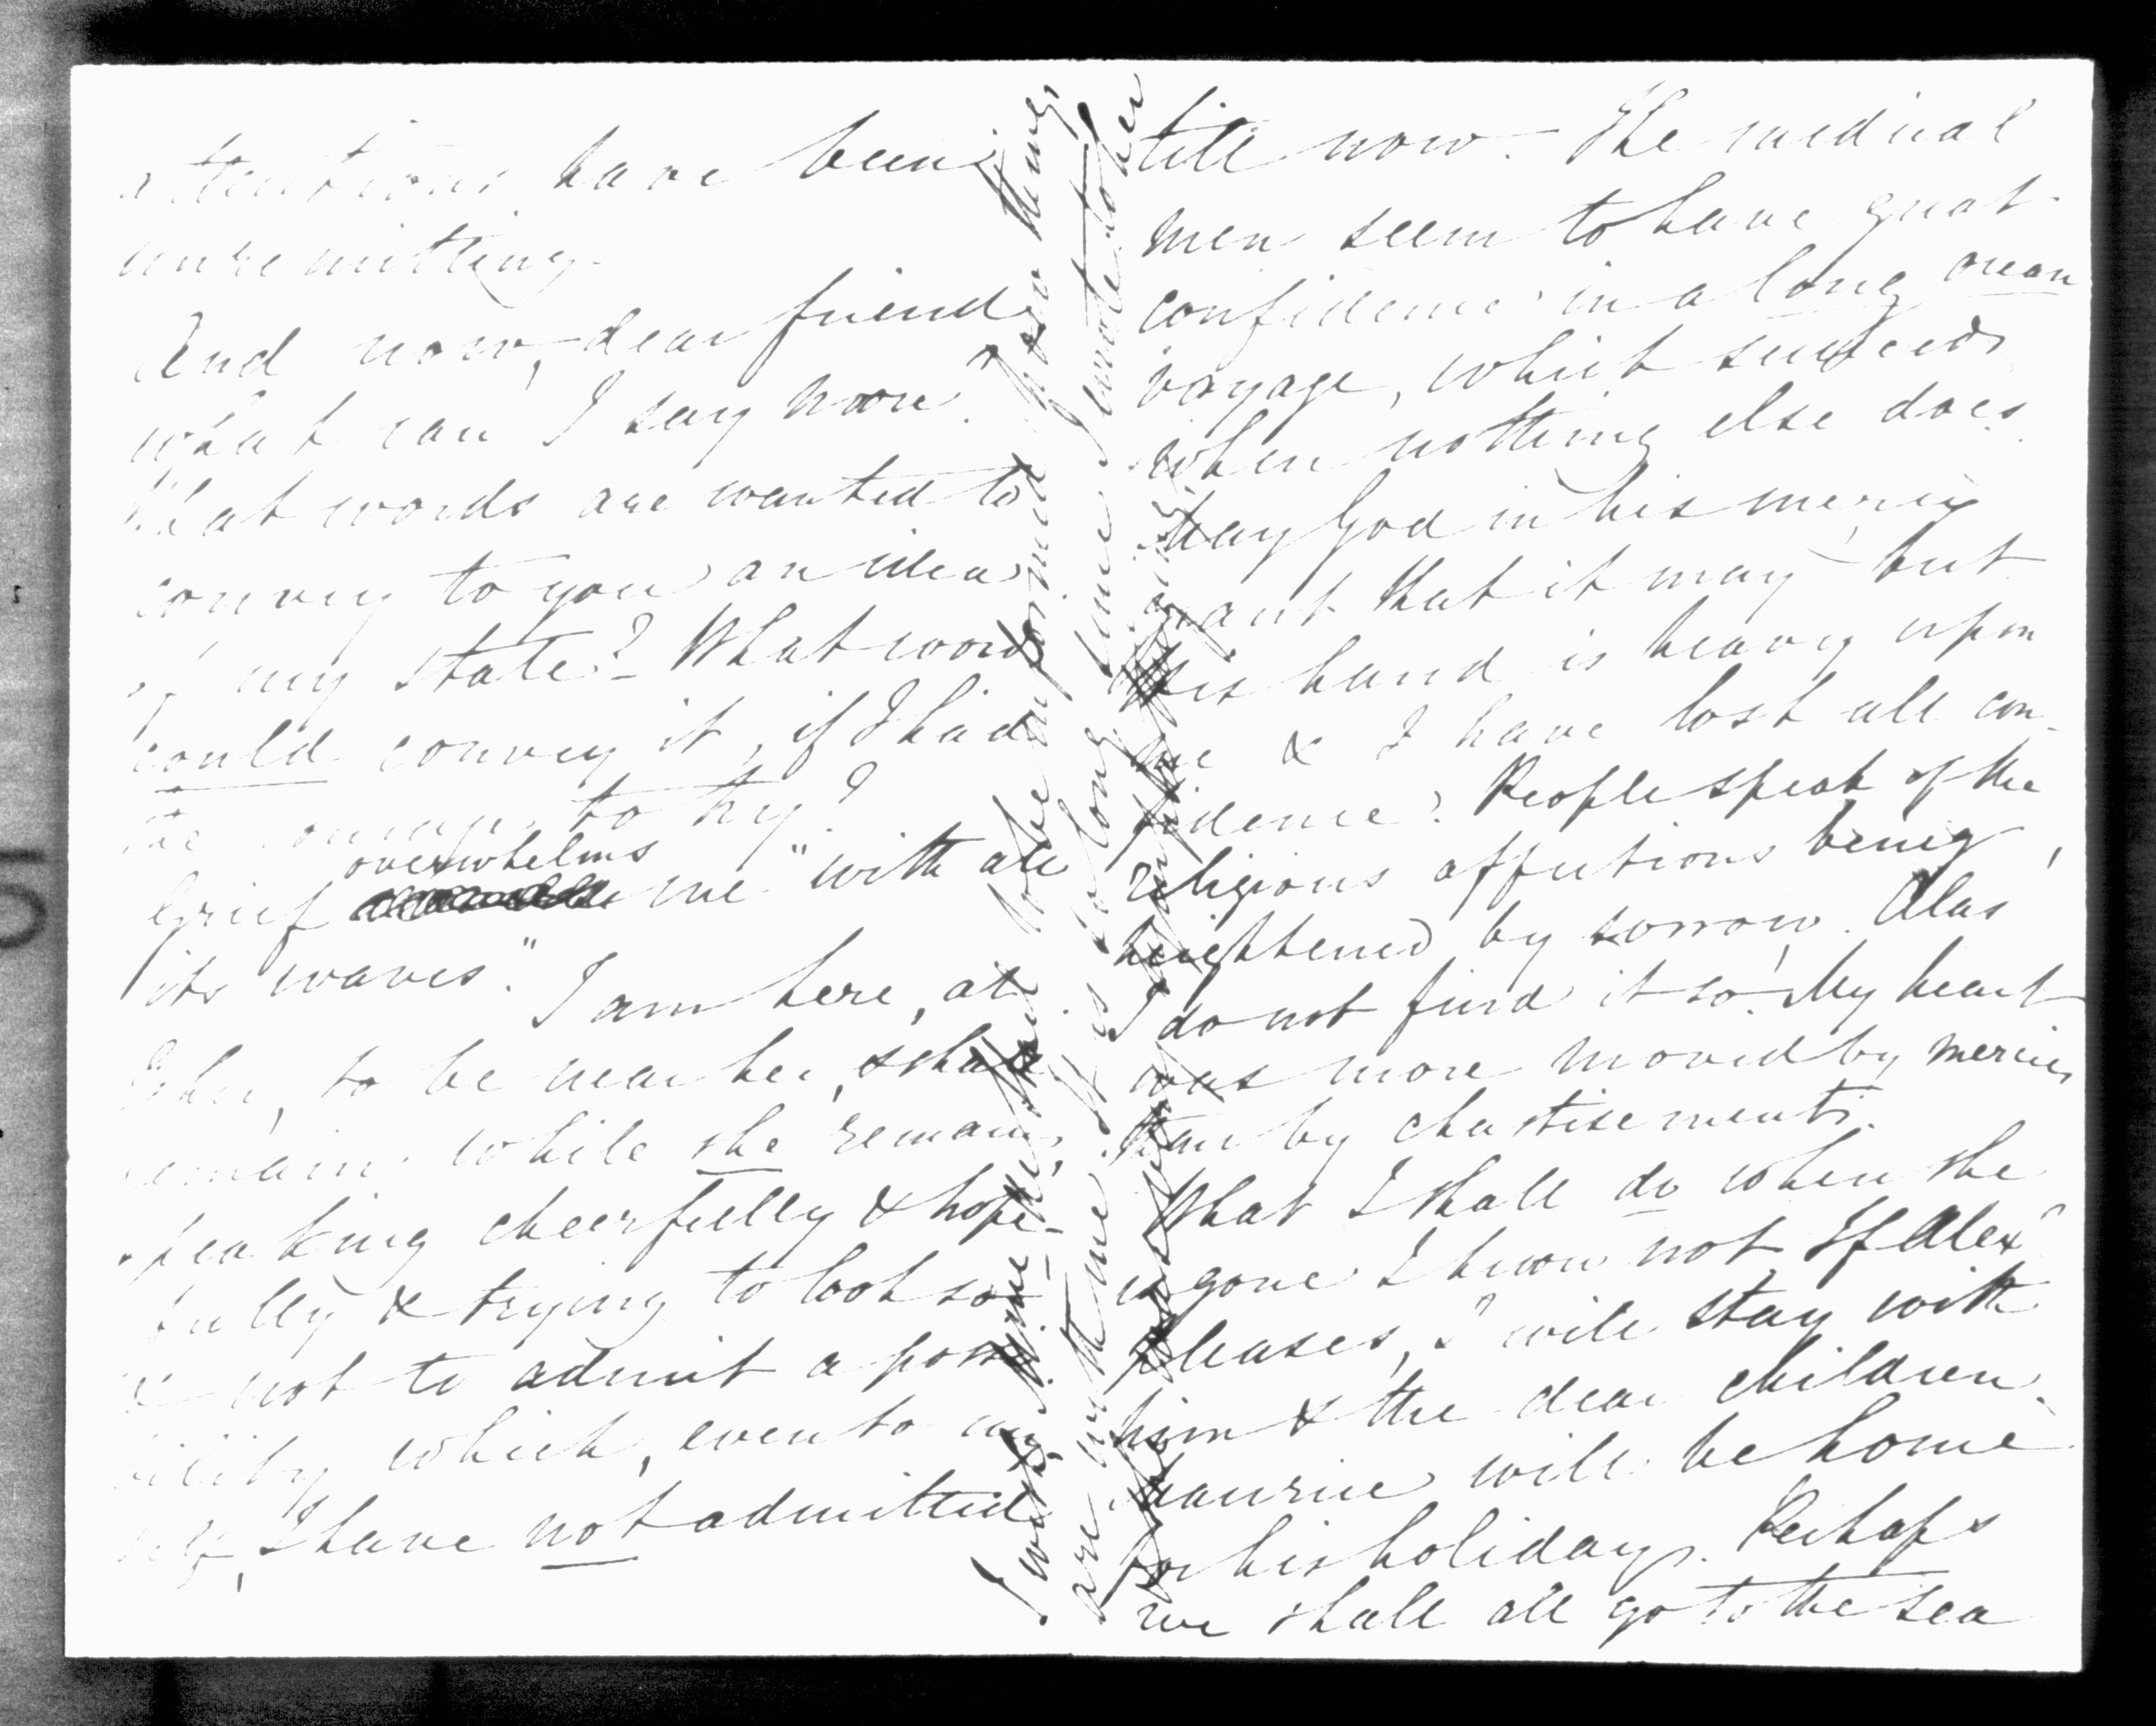 attentions have been
unremitting.
And now, dear friend
what can I say more?
What words are wanted to
convey to you an idea
of my state? What words
could convey it, if I had
the courage to try?
Grief overwhelms me "with all
its waves." I am here, at
to be near her, & shall
remain while she remains,
speaking cheerfully & hope-
fully & trying to look so-
& not to admit a possi-
bility which, even to my
self, I have not admitted
till now. The medical
men seem to have great
confidence in a long ocean
voyage, which succeeds
when nothing else does.
May God in his mercy
grant that it may but
His hand is heavy upon
me & I have lost all con-
fidence. People speak of the
religious affections being
heightened by sorrow. Alas,
I do not find it so. My heart
was more moved by mercies
than by chastisements.
What I shall do when she
is gone I know not. If Alexr
pleases, I will stay with
him & the dear children.
Maurice will be home
for his holidays. Perhaps
we shall all go to the sea
to be informed how things
are with me. It is so long since I wrote to her